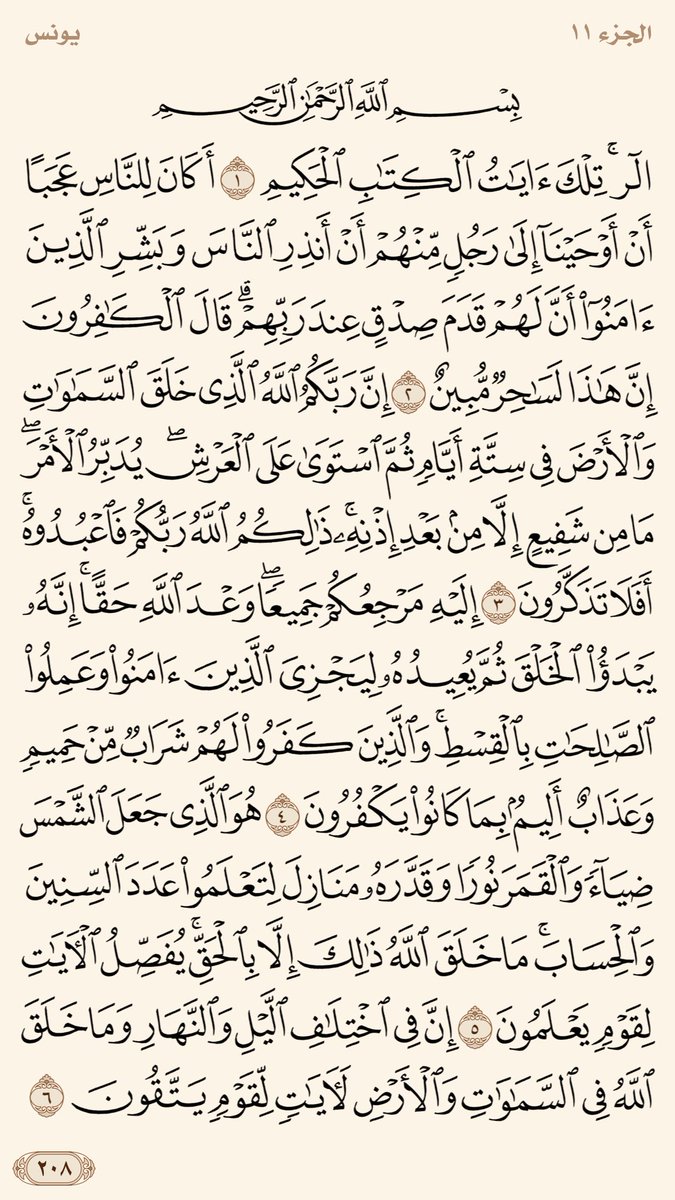 الجزء ١١
يونس
بِسْمِ ٱللَّهِ ٱلرَّحْمَٰنِ ٱلرَّحِيمِ
الٓر ۚ تِلْكَ ءَايَٰتُ ٱلْكِتَٰبِ ٱلْحَكِيمِ ١ أَكَانَ لِلنَّاسِ عَجَبًا
أَنْ أَوْحَيْنَآ إِلَىٰ رَجُلٍ مِّنْهُمْ أَنْ أَنذِرِ ٱلنَّاسَ وَبَشِّرِ ٱلَّذِينَ
ءَامَنُوٓا۟ أَنَّ لَهُمْ قَدَمَ صِدْقٍ عِندَ رَبِّهِمْ ۗ قَالَ ٱلْكَٰفِرُونَ
إِنَّ هَٰذَا لَسَٰحِرٌ مُّبِينٌ ٢ إِنَّ رَبَّكُمُ ٱللَّهُ ٱلَّذِى خَلَقَ ٱلسَّمَٰوَٰتِ
وَٱلْأَرْضَ فِى سِتَّةِ أَيَّامٍ ثُمَّ ٱسْتَوَىٰ عَلَى ٱلْعَرْشِ ۖ يُدَبِّرُ ٱلْأَمْرَ ۖ
مَا مِن شَفِيعٍ إِلَّا مِنۢ بَعْدِ إِذْنِهِۦ ۚ ذَٰلِكُمُ ٱللَّهُ رَبُّكُمْ فَٱعْبُدُوهُ ۚ
أَفَلَا تَذَكَّرُونَ ٣ إِلَيْهِ مَرْجِعُكُمْ جَمِيعًا ۖ وَعْدَ ٱللَّهِ حَقًّا ۚ إِنَّهُۥ
يَبْدَؤُا۟ ٱلْخَلْقَ ثُمَّ يُعِيدُهُۥ لِيَجْزِىَ ٱلَّذِينَ ءَامَنُوا۟ وَعَمِلُوا۟
ٱلصَّٰلِحَٰتِ بِٱلْقِسْطِ ۚ وَٱلَّذِينَ كَفَرُوا۟ لَهُمْ شَرَابٌ مِّنْ حَمِيمٍ
وَعَذَابٌ أَلِيمٌۢ بِمَا كَانُوا۟ يَكْفُرُونَ ٤ هُوَ ٱلَّذِى جَعَلَ ٱلشَّمْسَ
ضِيَآءً وَٱلْقَمَرَ نُورًا وَقَدَّرَهُۥ مَنَازِلَ لِتَعْلَمُوا۟ عَدَدَ ٱلسِّنِينَ
وَٱلْحِسَابَ ۚ مَا خَلَقَ ٱللَّهُ ذَٰلِكَ إِلَّا بِٱلْحَقِّ ۚ يُفَصِّلُ ٱلْءَايَٰتِ
لِقَوْمٍ يَعْلَمُونَ ٥ إِنَّ فِى ٱخْتِلَٰفِ ٱلَّيْلِ وَٱلنَّهَارِ وَمَا خَلَقَ
ٱللَّهُ فِى ٱلسَّمَٰوَٰتِ وَٱلْأَرْضِ لَءَايَٰتٍ لِّقَوْمٍ يَتَّقُونَ ٦
٢٠٨